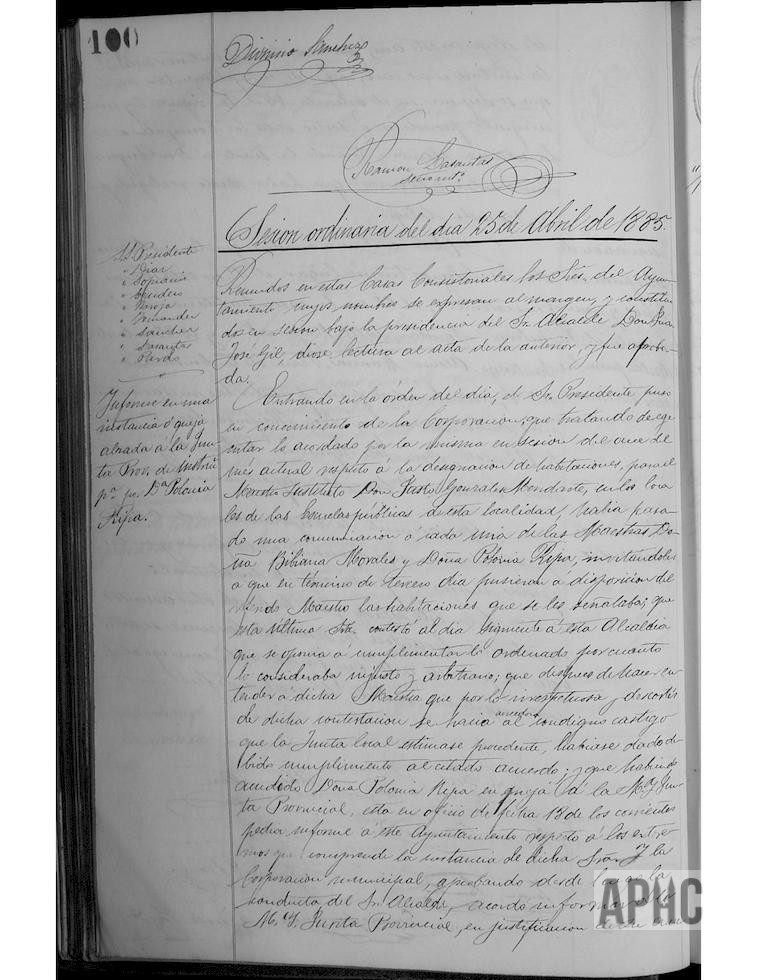 100
Divinio Sanchez
Ramon Lasantas
Secret.º
Sesion ordinaria del dia 25 de Abril de 1885.
S. Presidente
" Diaz
" Sopranis
"
" Naroja
" Hernandez
" Sanchez
" Lasantas
"
Informe en una
instancia ó queja
alzada á la Jun-
ta Prov. de instruc
pn. pr. Dª Polonia
Ripa.
Reunidos en estas Casas Consistoriales los Sres. del Ayun-
tamiento cuyos nombres se expresan al margen, y constitui-
dos en sesion bajo la presidencia del Sr. Alcalde Don Juan
José Gil, diose lectura al acta de la anterior, y fue aproba-
da.
Entrando en la órden del dia, el Sr. Presidente puso
en conocimiento de la Corporacion, que tratando de eje-
cutar lo acordado por la misma en sesion del once del
mes actual respeto á la designacion de habitaciones, para el
Maestro Don Justo Gonzalez Mendante, en los loca
les de las Escuelas públicas de esta localidad, habia pasa-
do una comunicacion á cada una de las Maestras Do-
ña Bibiana Morales y Doña Polonia Ripa, invitandoles
a que en término de tercero dia pusieran a disposicion del
referido Maestro las habitaciones que se les señalaba; que
esta última Sra. contestó al dia siguiente á esta Alcaldia
que se oponia á cumplimentar lo ordenado por cuanto
lo consideraba injusto y arbitrario; que despues de hacer en
tender á dicha Maestra que por lo irrespetuosa y descortés
de dicha contestacion se hacia acreedora al condigno castigo
que la Junta local estimase procedente, habiase dado de-
bido cumplimiento al citado acuerdo; y que habiendo
acudido Doña Polonia Ripa en queja á la M. Y. Jun-
ta Provincial, esta en oficio de fecha 18 de los corrientes
pedia informe á este Ayuntamiento respeto á los estre-
mos que comprende la instancia de dicha Sra. Y la
Corporacion municipal, aprobando desde luego la
conducta del Sr. Alcalde, acordó informar á la
M. Y. Junta Provincial, en justificacion de su
APHC